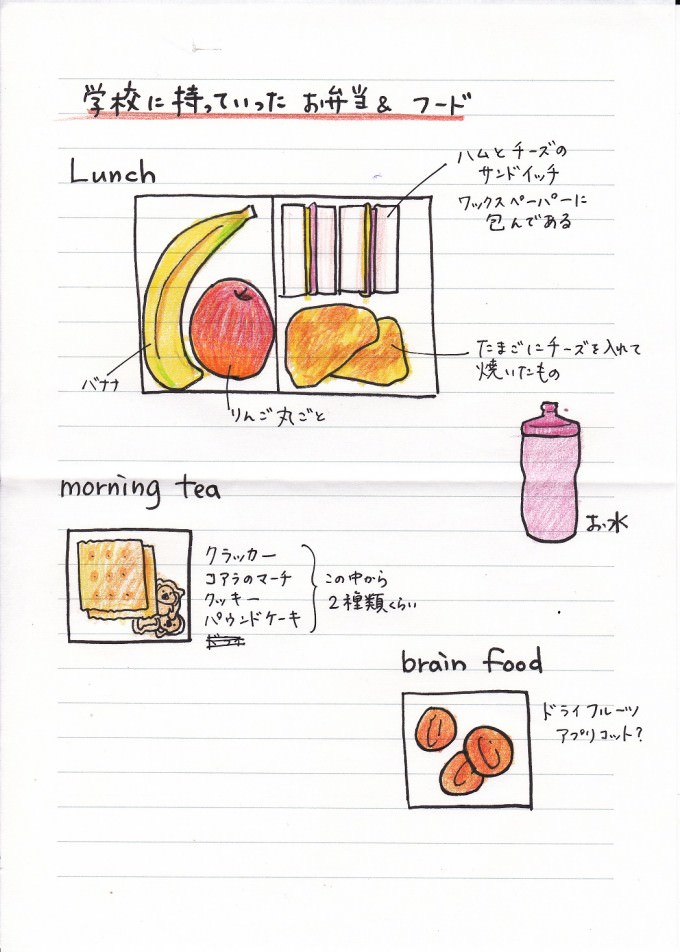 学校に持っていった お弁当 & フード
Lunch
ハムとチーズの
サンドイッチ
ワックスペーパーに
包んである
たまごにチーズを入れて
焼いたもの
バナナ
りんご丸ごと
お水
morning tea
クラッカー
コアラのマーチ
クッキー
パウンドケーキ
この中から
2種類くらい
brain food
ドライフルーツ
アプリコット?